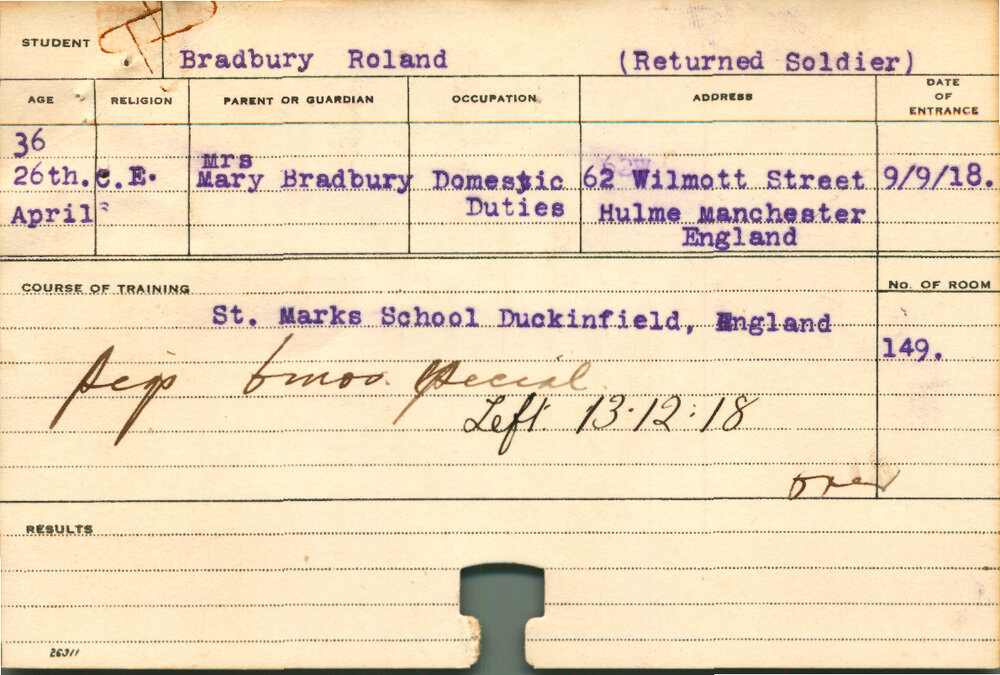 STUDENT Bradbury Roland (Returned Soldier)
AGE RELIGION PARENT OR GUARDIAN OCCUPATION ADDRESS DATE OF ENTRANCE
36
26th. C.E. Mrs Mary Bradbury Domestic Duties 62 Wilmott Street 9/9/18.
April Hulme Manchester
England
COURSE OF TRAINING No. OF ROOM
St. Marks School Duckinfield, England
149.
6 mos. special
Left 13.12.18
over
RESULTS
26311